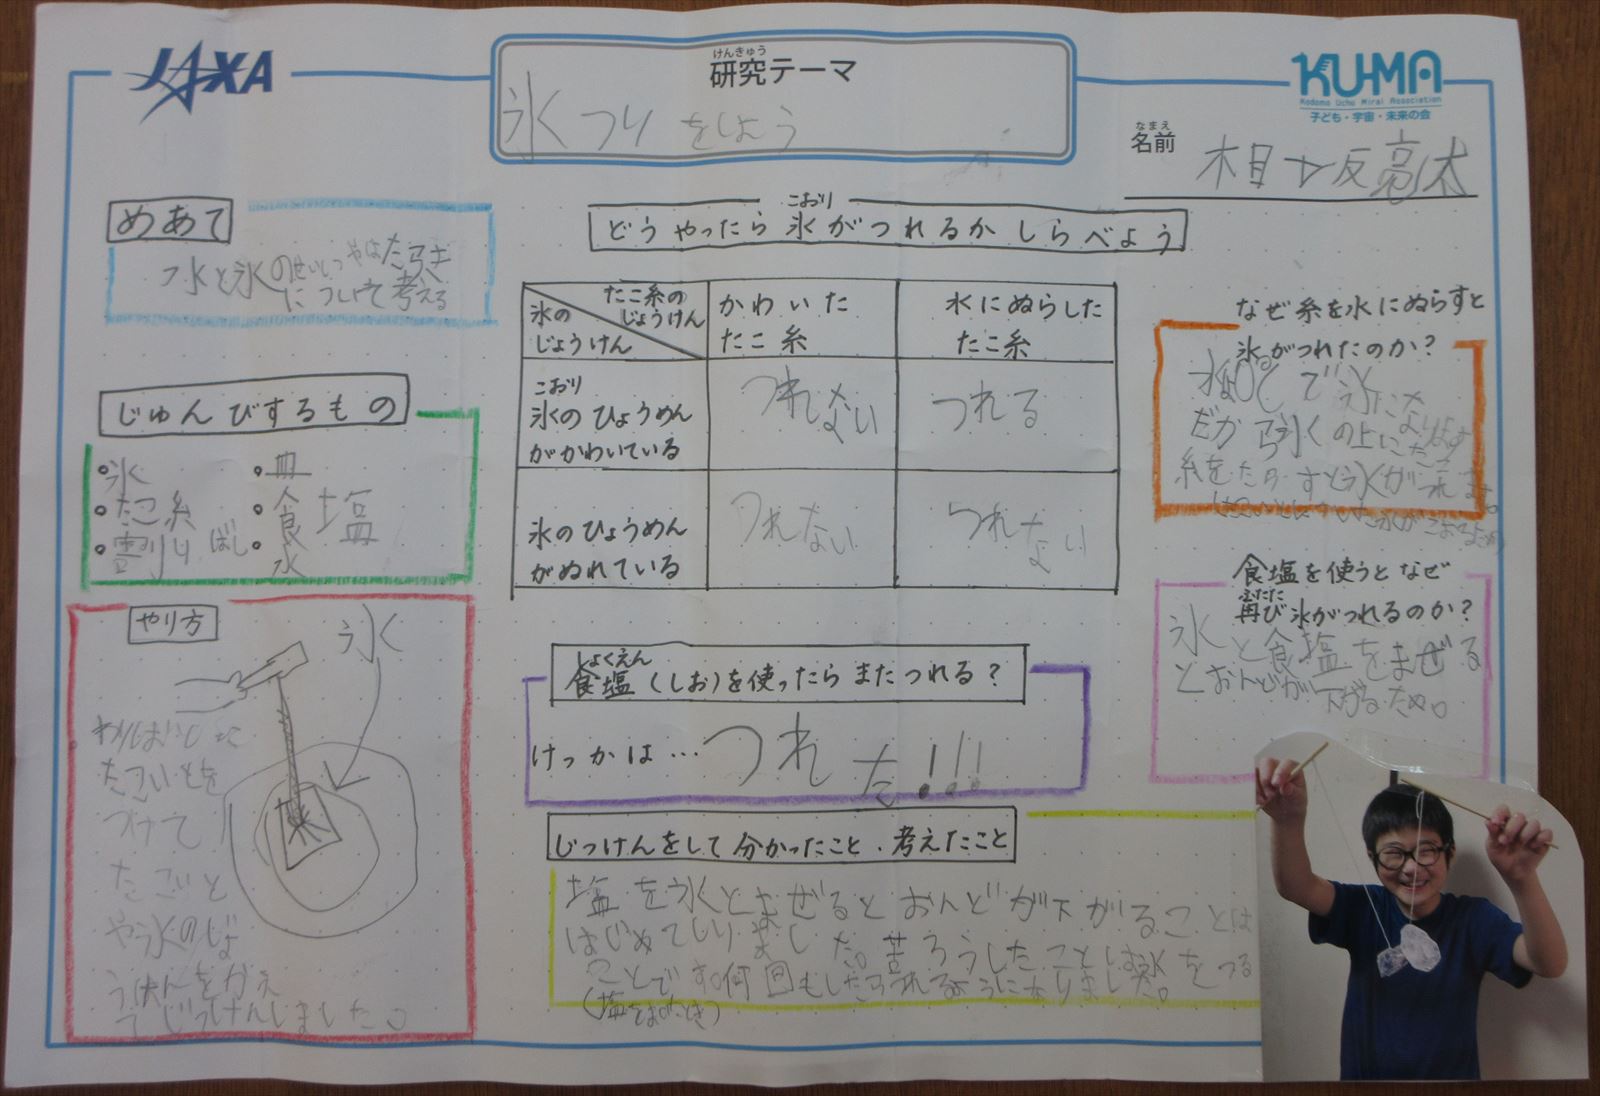 JAXA
けんきゅう
研究テーマ
氷つりをしよう
KU-MA
Kodomo Uchu Mirai Association
子ども・宇宙・未来の会
なまえ
名前
相坂亮太
めあて
水と氷のせいしつやはたらき
について考える
じゅんびするもの
・氷
・たこ糸
・割りばし
・皿
・食塩
・水
やり方
氷
わりばしに
たこいとを
つけて
たこいと
や氷のじょ
うけんをかえ
てじっけんしました。
こおり
どうやったら氷がつれるかしらべよう
たこ糸の
じょうけん
氷の
じょうけん
かわいた
たこ糸
水にぬらした
たこ糸
こおり
氷のひょうめん
がかわいている
つれない
つれる
氷のひょうめん
がぬれている
つれない
つれない
しょくえん
食塩(しお)を使ったらまたつれる?
けっかは…つれた!!!
じっけんをして分かったこと・考えたこと
塩を氷とまぜるとおんどが下がることは
はじめてしりました。苦ろうしたことは氷をつる
ことです。何回もしたらつれるようになりました。
なぜ糸を水にぬらすと
氷がつれたのか?
水は0℃で氷に
なります
だから氷の上にたこ
糸をたらすと氷がつれます。
食塩を使うとなぜ
ふたた
再び氷がつれるのか?
氷と食塩をまぜる
とおんどが下がるため。